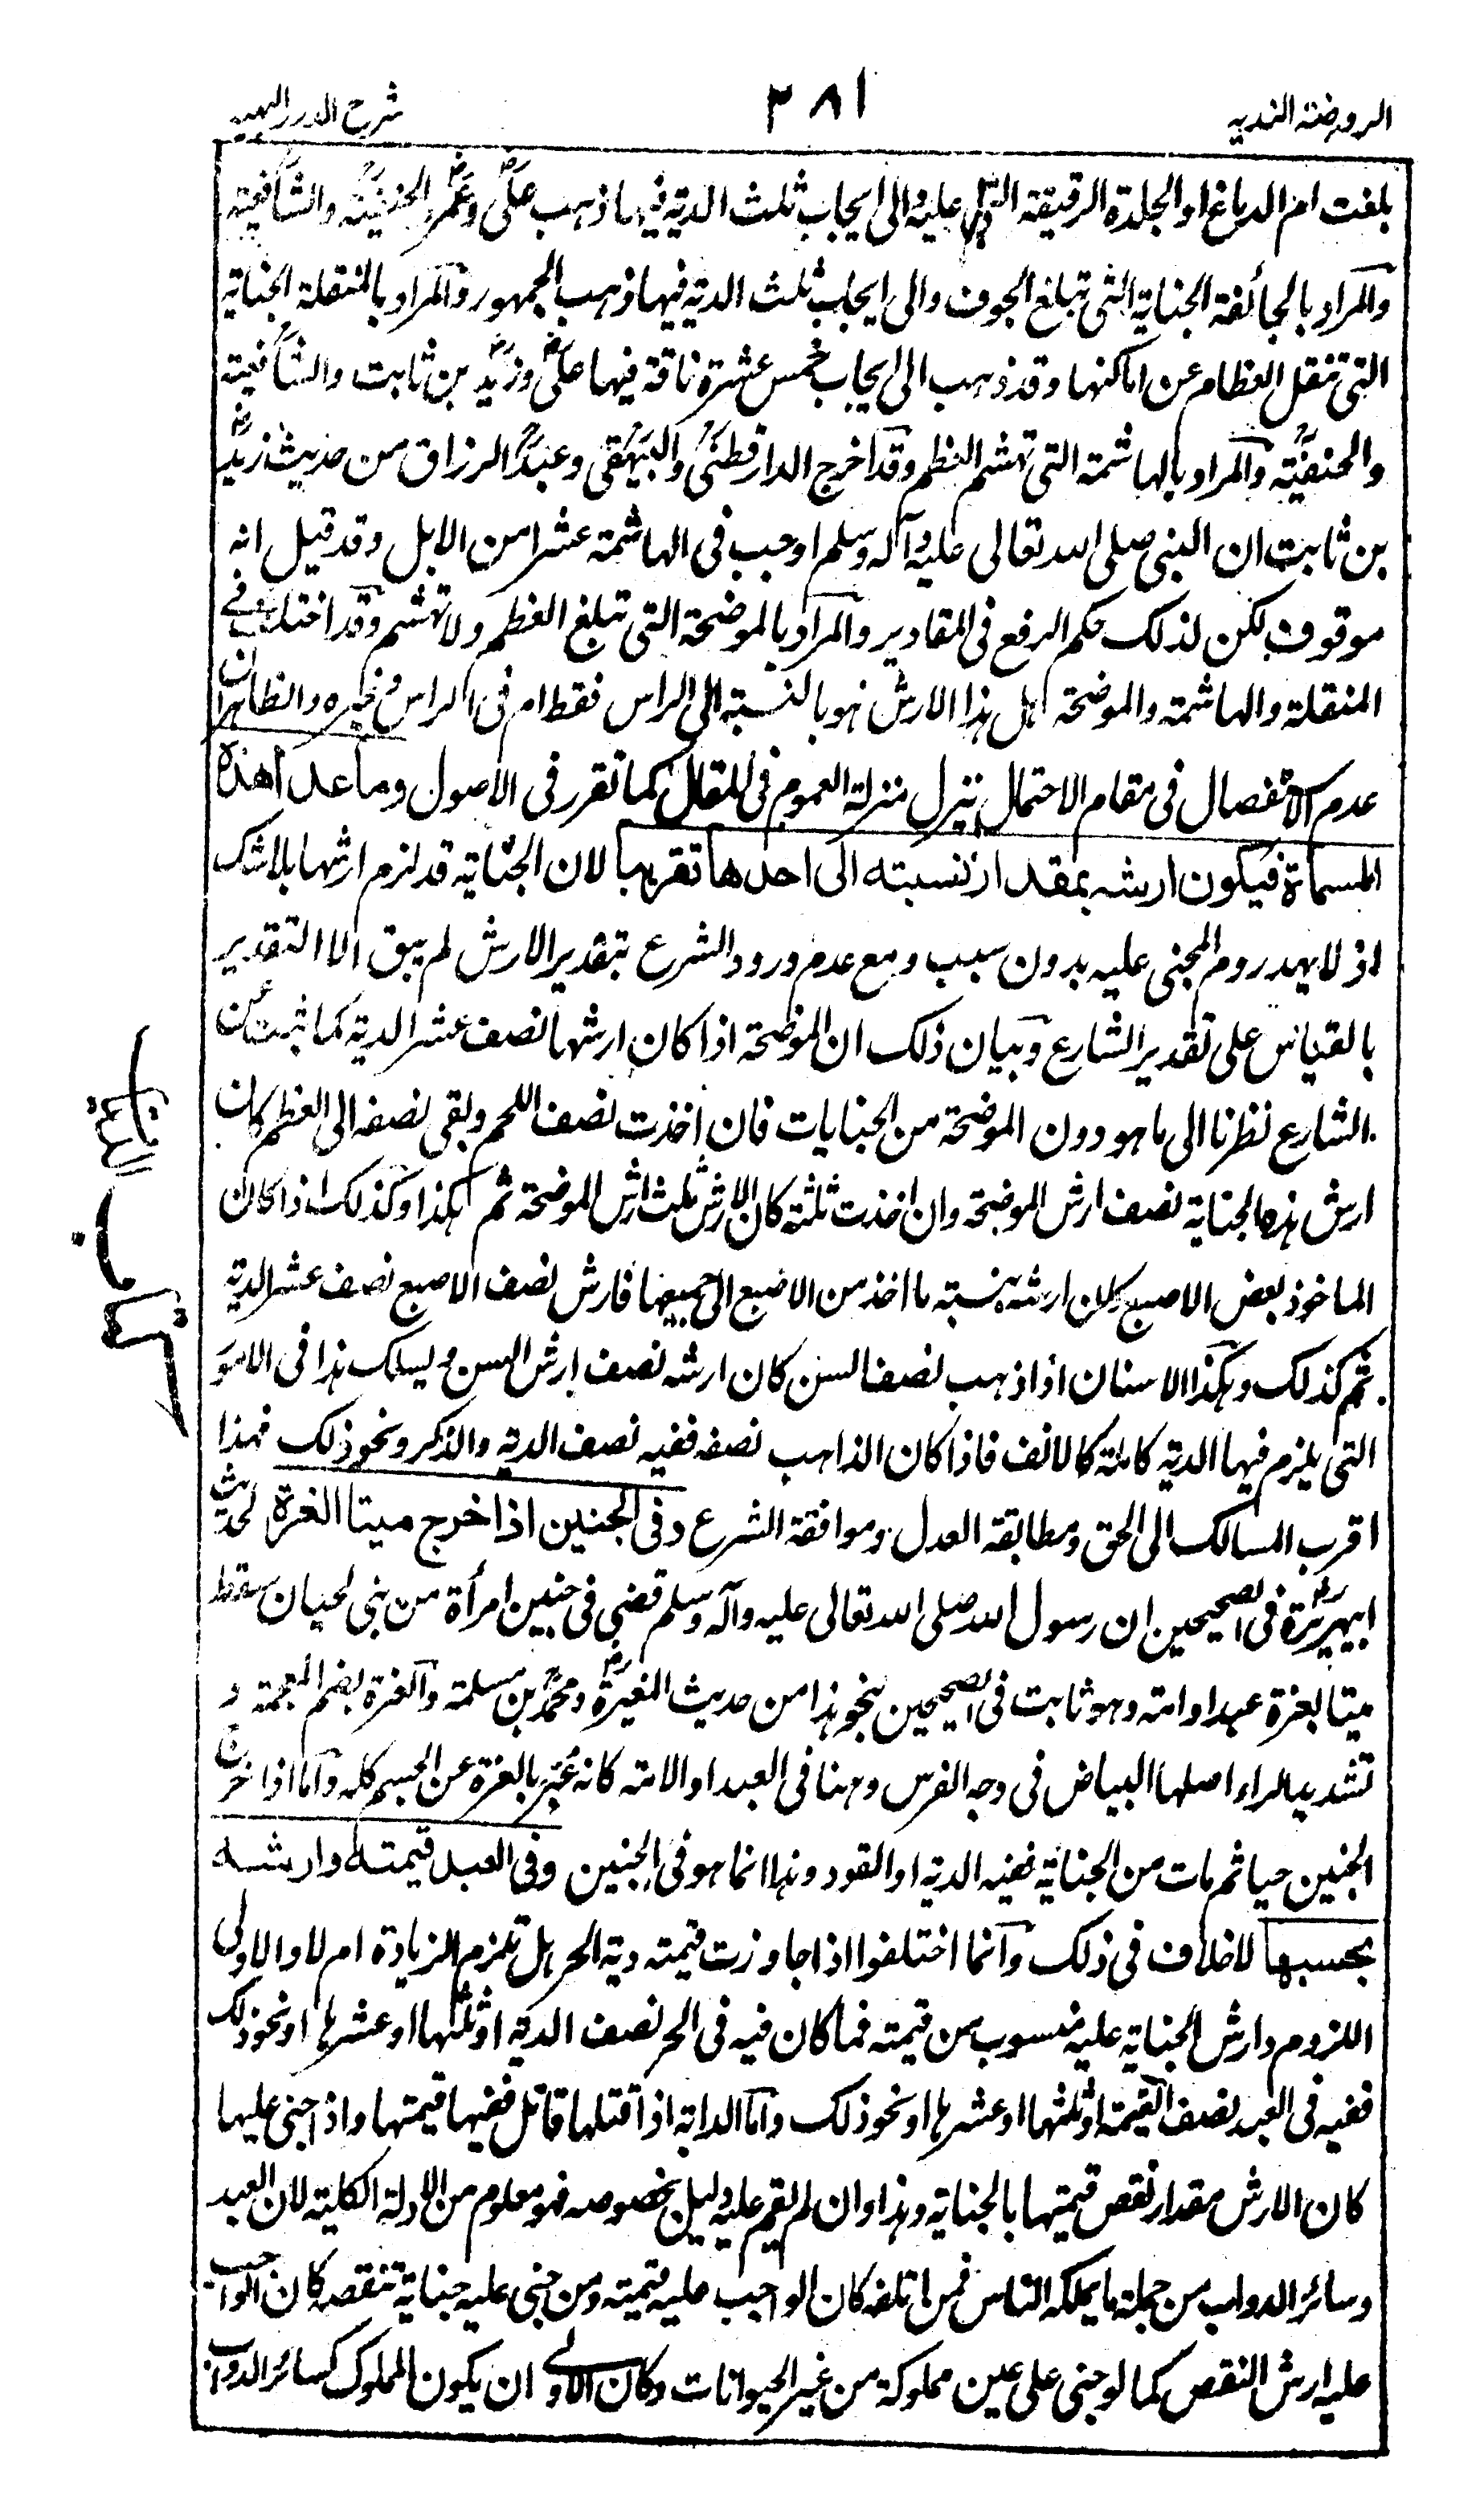 الروضة الندية
٢٨١
شرح الدرر البهية
بلغت ام الدماغ او الجلدة الرقيقة التي عليه والى ايجاب ثلث الدية فيها ذهب علي وعمر والحنفية والشافعية
والمراد بالجائفة الجناية التي تبلغ الجوف والى ايجاب ثلث الدية فيها ذهب الجمهور والمراد بالمنقلة الجناية
التي تنقل العظام عن اماكنها وقد ذهب الى ايجاب خمس عشرة ناقة فيها علي وزيد بن ثابت والشافعية
والحنفية والمراد بالهاشمة التي تهشم العظم وقد اخرج الدارقطني والبيهقي وعبد الرزاق من حديث زيد
بن ثابت ان النبي صلى الله تعالى عليه وآله وسلم اوجب في الهاشمة عشرا من الابل وقد قيل انه
موقوف لكن لذلك حكم الرفع في المقادير والمراد بالموضحة التي تبلغ العظم ولا تهشم وقد اختلف في
المنقلة والهاشمة والموضحة هل هذا الارش هو بالنسبة الى الراس فقط ام في الراس وغيره والظاهر ان
عدم الاستفصال في مقام الاحتمال ينزل منزلة العموم في المقال كما تقرر في الاصول وما عدا هذه
المسماة فيكون ارشه بمقدار نسبته الى احدها تقريبا لان الجناية قد لزم ارشها بلا شك
اذ لا يهدر دم المجني عليه بدون سبب ومع عدم ورود الشرع بتقدير الارش لم يبق الا التقدير
بالقياس على تقدير الشارع وبيان ذلك ان الموضحة اذا كان ارشها نصف عشر الدية كما ثبت عن
الشارع نظرنا الى ما هو دون الموضحة من الجنايات فان اخذت نصف اللحم وبقي نصفه الى العظم كان
ارش هذه الجناية نصف ارش الموضحة وان اخذت ثلثه كان الارش ثلث ارش الموضحة ثم هكذا وكذلك اذا كان
الماخوذ بعض الاصبع كان ارشه بنسبة ما اخذ من الاصبع الى جميعها فارش نصف الاصبع نصف عشر الدية
ثم كذلك وهكذا الاسنان اذا ذهب نصف السن كان ارشه نصف ارش السن ويسلك هذا في الامور
التي يلزم فيها الدية كاملة كالانف فاذا كان الذاهب نصفه ففيه نصف الدية والذكر ونحو ذلك فهذا
اقرب المسالك الى الحق ومطابقة العدل وموافقة الشرع وفي الجنين اذا خرج ميتا الغرة لحديث
ابي هريرة في الصحيحين ان رسول الله صلى الله تعالى عليه وآله وسلم قضى في جنين امرأة من بني لحيان سقط
ميتا بغرة عبد او امة وهو ثابت في الصحيحين بنحو هذا من حديث المغيرة ومحمد بن مسلمة والغرة بضم المعجمة و
تشديد الراء اصلها البياض في وجه الفرس وهنا في العبد او الامة كانه عبر بالغرة عن الجسم كله واما اذا خرج
الجنين حيا ثم مات من الجناية ففيه الدية او القود وهذا انما هو في الجنين وفي العبد قيمته وارشه
بحسبها لا خلاف في ذلك وانما اختلفوا اذا جاوزت قيمته دية الحر هل تلزم الزيادة ام لا والاولى
اللزوم وارش الجناية عليه منسوب من قيمته فما كان فيه في الحر نصف الدية او ثلثها او عشرها او نحو ذلك
ففيه في العبد نصف القيمة او ثلثها او عشرها او نحو ذلك واما الدابة اذا قتلها قاتل ففيها قيمتها واذا جنى عليها
كان الارش مقدار نقص قيمتها بالجناية وهذا وان لم يقم عليه دليل بخصوصه فهو معلوم من الادلة الكلية لان العبد
وسائر الدواب من جملة ما يملكه الناس فمن اتلفه كان الواجب عليه قيمته ومن جنى عليه جناية تنقصه كان الواجب
عليه ارش النقص كما لو جنى على عين مملوكة من غير الحيوانات وكان الاولى ان يكون المملوك كسائر الدواب